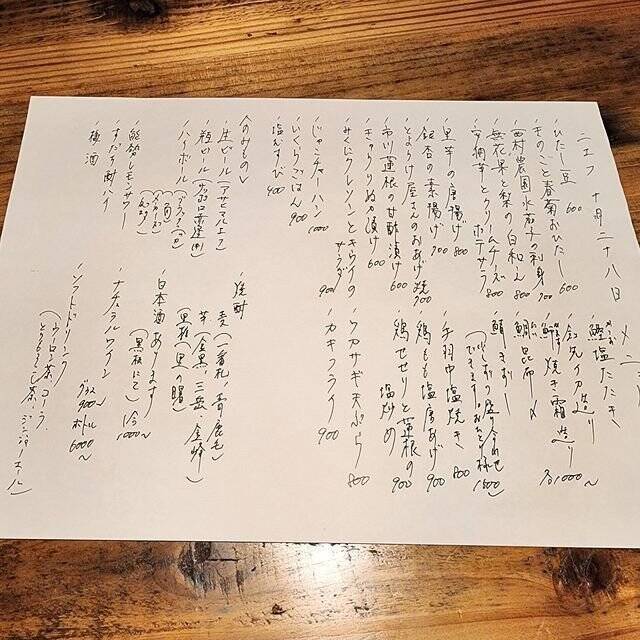 二エフ 十月二十八日 メニュー
・ひたし豆 600
・きのこと春菊おひたし 600
・西村農園水茄子の刺身 700
・無花果と梨の白和え 800
・安納芋とクリームチーズポテサラ 800
・里芋の唐揚げ 800
・銀杏の素揚げ 700
・とようけ屋さんのおあげ焼 700
・市川蓮根の甘酢漬け 600
・きゅうりぬか漬け 600
・みくにクレソンとキウイのサラダ 900
・じゃこチャーハン 1000
・いくらごはん 900
・塩むすび 400
・鰹塩たたき
・剣先イカ造り
・鰆焼き霜造り
・鯛昆布〆
・鯖きずし
各1000~
(少しずつ盛り合わせできます おひとり様 1500)
・手羽中塩焼き 800
・鶏もも塩唐あげ 900
・鶏せせりと蓮根の塩炒め 900
・ワカサギ天ぷら 800
・カキフライ 900
<のみもの>
・生ビール(アサヒマルエフ)
・瓶ビール(サッポロ赤星(中))
・ハイボール
・能勢レモンサワー
・すだち酎ハイ
・梅酒
・焼酎
麦(一番札、青鹿毛)
芋(金黒、三岳、金峰)
(黒糖(里の曙)
・日本酒あります
(黒板にて)(合1000~
・ナチュラルワイン
グラス900~ ボトル6000~
・ソフトドリンク
(ウーロン茶、コーラ、
とうもろこし茶、ジンジャーエール)